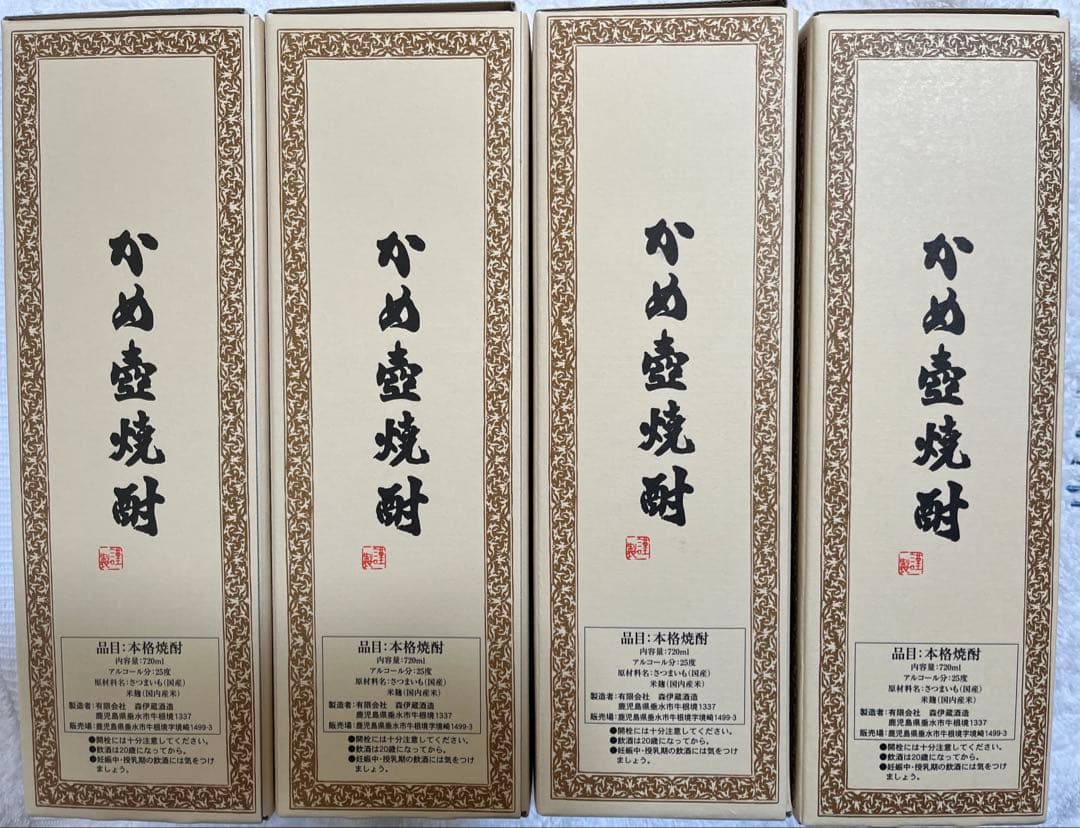 かめ壺焼酎
謹製
品目：本格焼酎
内容量：720ml
アルコール分：25度
原材料名：さつまいも（国産）
米麹（国内産米）
製造者：有限会社　森伊蔵酒造
鹿児島県垂水市牛根境1337
販売場：鹿児島県垂水市牛根境字境崎1499-3
●開栓には十分注意してください。
●飲酒は20歳になってから。
●妊娠中・授乳期の飲酒には気をつけ
ましょう。
かめ壺焼酎
謹製
品目：本格焼酎
内容量：720ml
アルコール分：25度
原材料名：さつまいも（国産）
米麹（国内産米）
製造者：有限会社　森伊蔵酒造
鹿児島県垂水市牛根境1337
販売場：鹿児島県垂水市牛根境字境崎1499-3
●開栓には十分注意してください。
●飲酒は20歳になってから。
●妊娠中・授乳期の飲酒には気をつけ
ましょう。
かめ壺焼酎
謹製
品目：本格焼酎
内容量：720ml
アルコール分：25度
原材料名：さつまいも（国産）
米麹（国内産米）
製造者：有限会社　森伊蔵酒造
鹿児島県垂水市牛根境1337
販売場：鹿児島県垂水市牛根境字境崎1499-3
●開栓には十分注意してください。
●飲酒は20歳になってから。
●妊娠中・授乳期の飲酒には気をつけ
ましょう。
かめ壺焼酎
謹製
品目：本格焼酎
内容量：720ml
アルコール分：25度
原材料名：さつまいも（国産）
米麹（国内産米）
製造者：有限会社　森伊蔵酒造
鹿児島県垂水市牛根境1337
販売場：鹿児島県垂水市牛根境字境崎1499-3
●開栓には十分注意してください。
●飲酒は20歳になってから。
●妊娠中・授乳期の飲酒には気をつけ
ましょう。